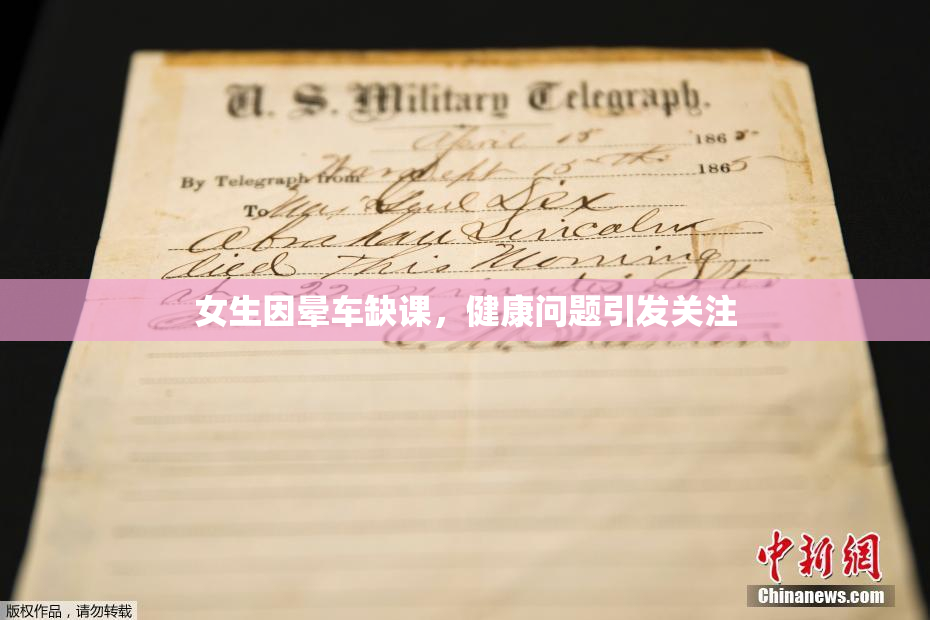 U. S. Military Telegraph.
April 15 1865
By Telegraph from War Dept 15th 1865
To Maj Genl Dix
Abraham Lincoln
died This Morning
at 22 minutes after
女生因晕车缺课，健康问题引发关注
中新网
Chinanews.com
版权作品，请勿转载